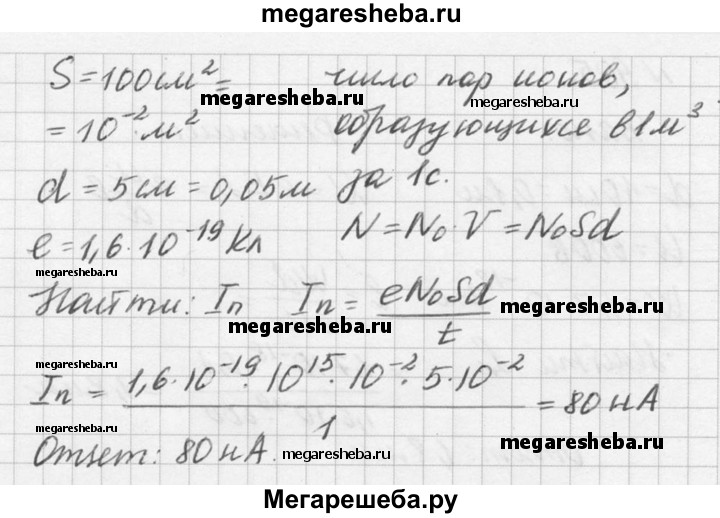 megaresheba.ru
S = 100 см² = число пар ионов,
megaresheba.ru megaresheba.ru
= 10⁻² м² образующихся в 1 м³
d = 5 см = 0,05 м за 1 с.
e = 1,6 · 10⁻¹⁹ Кл N = N₀ · V = N₀Sd
megaresheba.ru megaresheba.ru
Найти: Iп Iп = eN₀Sd / t megaresheba.ru
Iп = 1,6 · 10⁻¹⁹ · 10¹⁵ · 10⁻² · 5 · 10⁻² / 1 = 80 нА
megaresheba.ru
Ответ: 80 нА. megaresheba.ru
Мегарешеба.ру